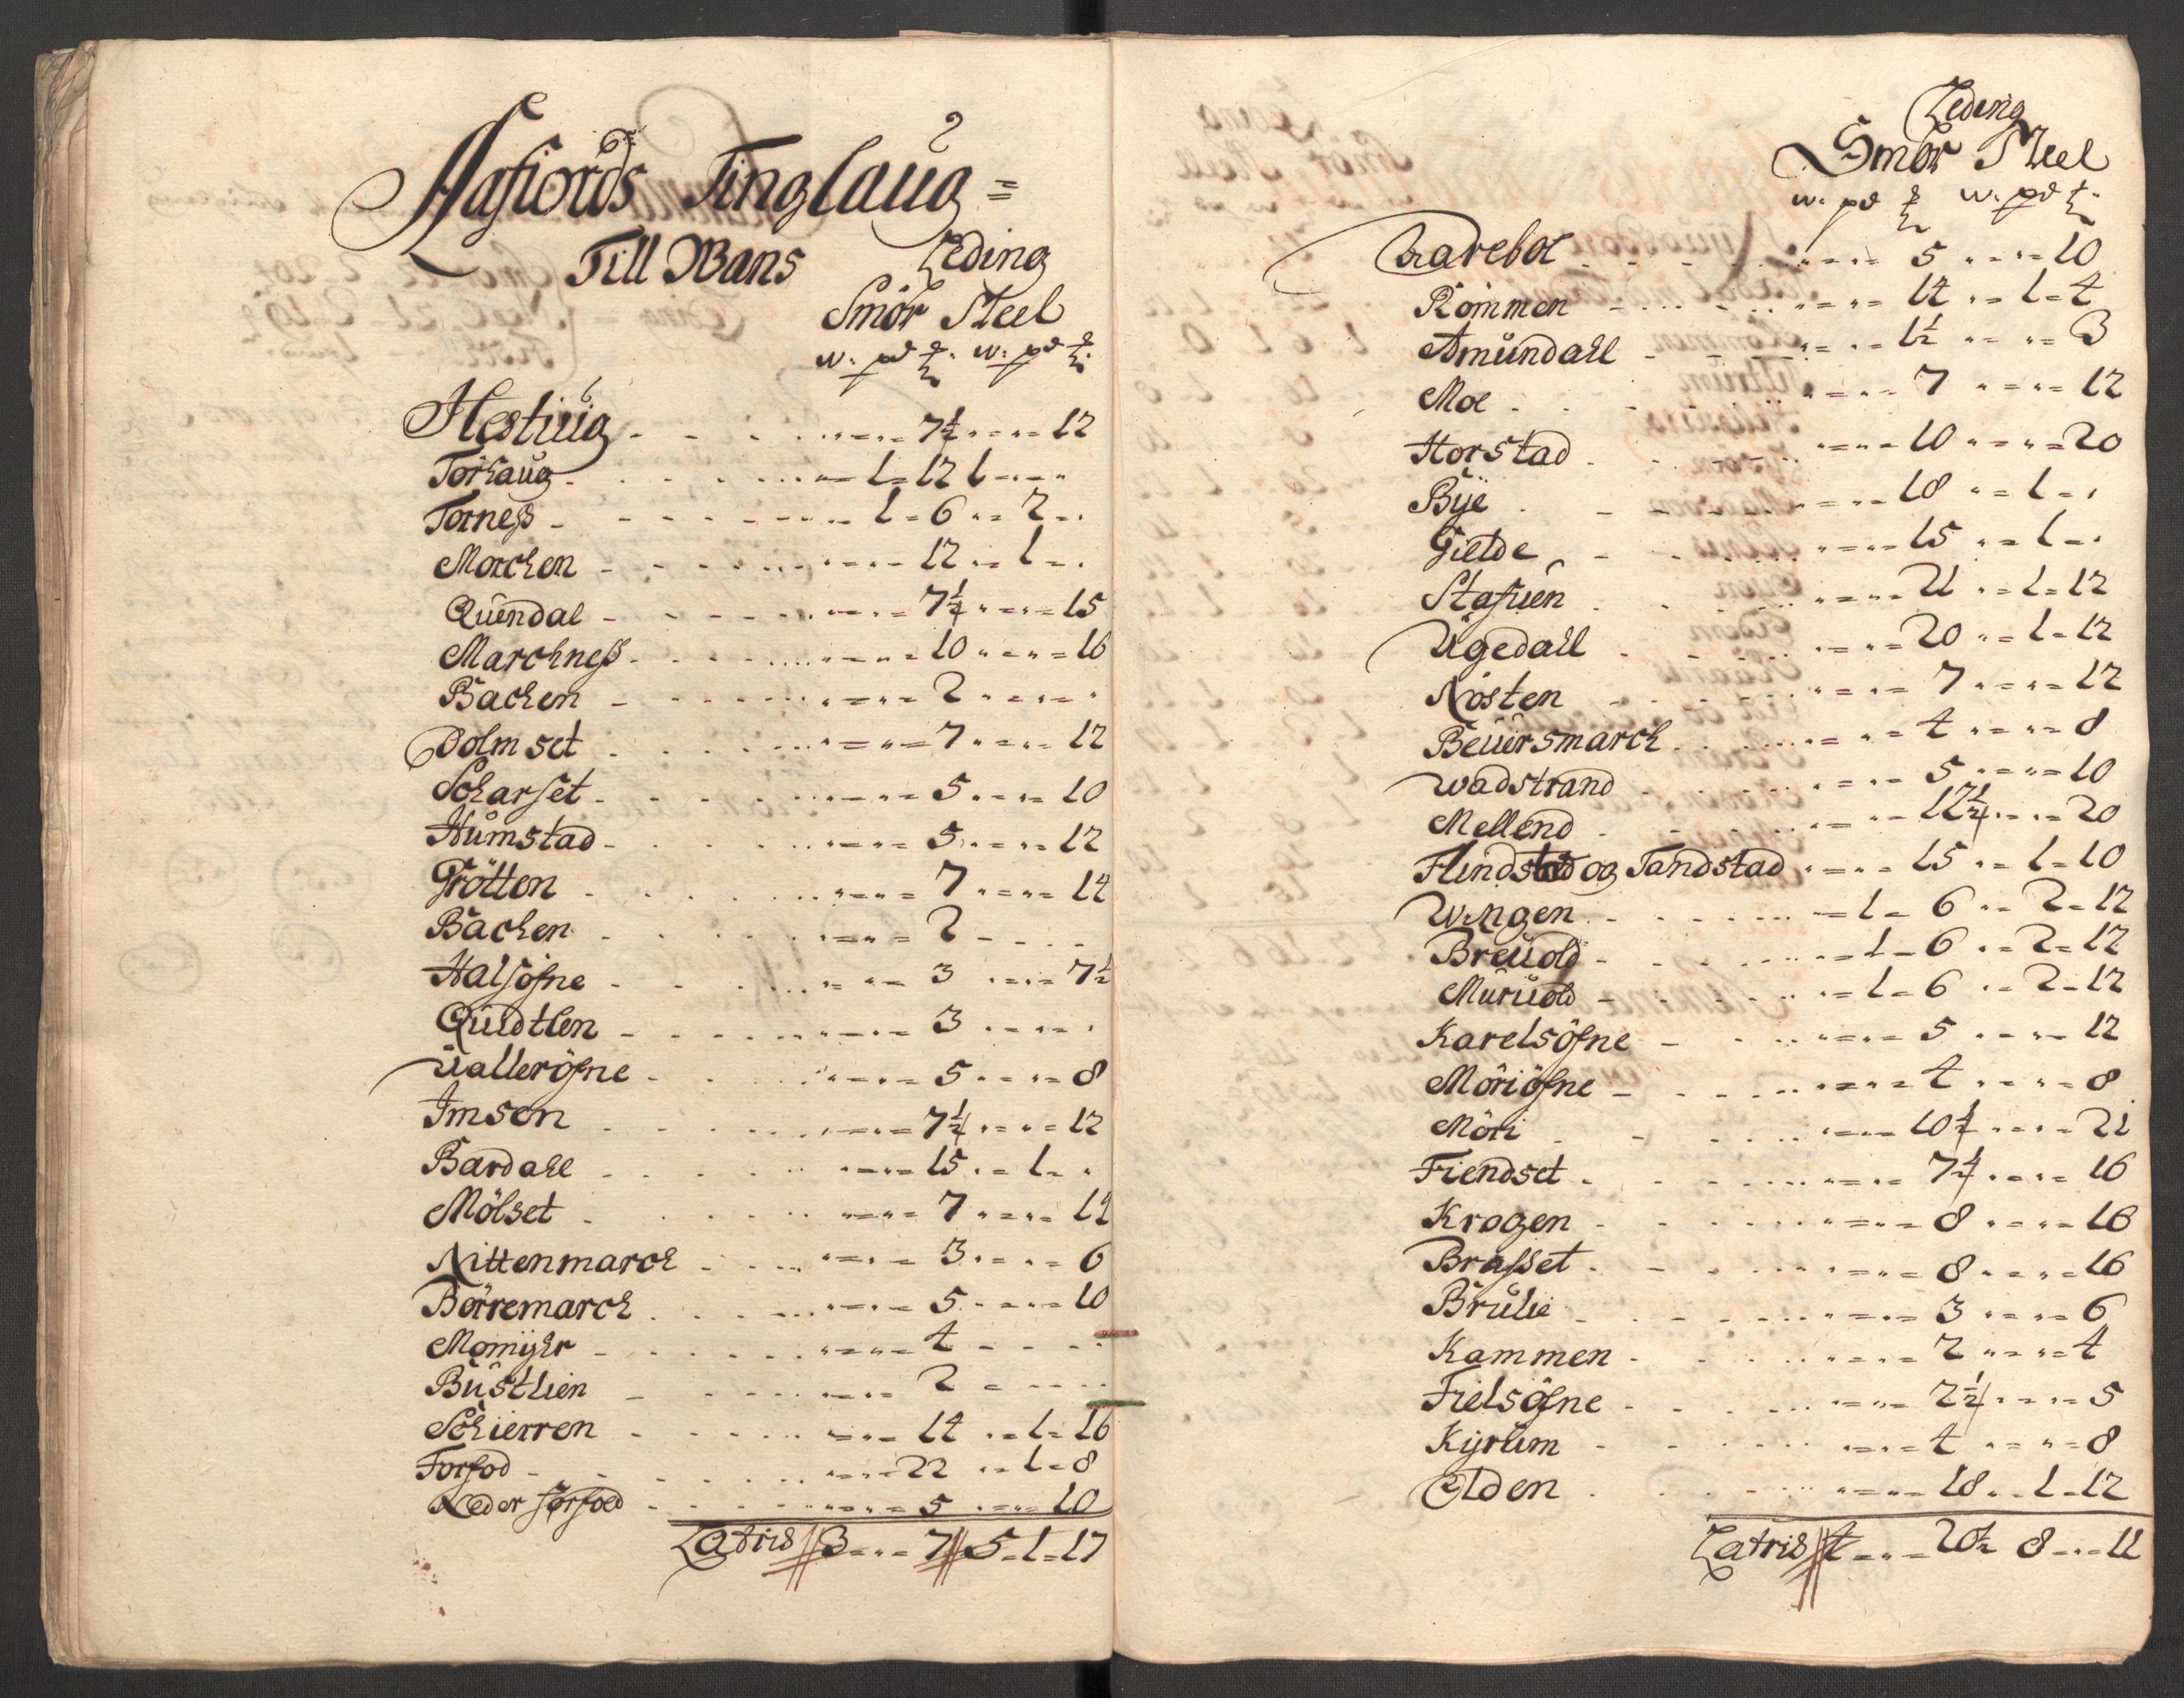 Aafiords Tinglaug =
Till Wans Leding
Smör Meel
w. pd ℔. w. pd ℔.
Hestuig - - - 7½ - - 12
Torhaug - - - 1 = 12 1 - - -
Torness - - - 1 = 6 - 2 - -
Morchen - - - 12 - 1 - -
Quendal - - - 7½ - - 15
Marchness - - - 10 - - 16
Bachen - - - 2 - - -
Dolmset - - - 7 - - 12
Scharset - - - 5 - - 10
Humstad - - - 5 - - 12
Grötten - - - 7 - - 14
Bachen - - - 2 - - -
Halsöfne - - - 3 - - 7½
Quidtlen - - - 3 - - -
Ualleröfne - - - 5 - - 8
Imsen - - - 7½ - - 12
Bardahl - - - 15 - 1 - -
Mölset - - - 7 - - 14
Nittenmarch - - - 3 - - 6
Börremarch - - - 5 - - 10
Momyhr - - - 4 - - -
Bustlien - - - 2 - - -
Schierren - - - 14 - 1 - 16
Forfod - - - 22 - 1 - 8
Neder forfoed - - - 5 - - 10
Latris 3 - - 7 5 - 1 - 17
Leding
Smör Meel
w. pd ℔ w. pd ℔.
Harebot - - - 5 - - 10
Römmen - - - 14 - 1 - 4
Amundahl - - - 1½ - - 3
Moe - - - 7 - - 12
Horstad - - - 10 - - 20
Bye - - - 18 - 1 - -
Gielde - - - 15 - 1 - -
Stafuen - - - 21 - 1 - 12
Ugedall - - - 20 - 1 - 12
Nösten - - - 7 - - 12
Beuersmarch - - - 4 - - 8
Wadstrand - - - 5 - - 10
Mellend - - - 12½ - - 20
Hindstad og Tandstad - - - 15 - 1 - 10
Wingen - - - 1 - 6 - 2 - 12
Breuold - - - 1 - 6 - 2 - 12
Muruold - - - 1 - 6 - 2 - 12
Karelsöfne - - - 5 - - 12
Möriöfne - - - 4 - - 8
Möri - - - 10½ - - 21
Fiendset - - - 7½ - - 16
Krogen - - - 8 - - 16
Brasset - - - 8 - - 16
Brulie - - - 3 - - 6
Kammen - - - 2 - - 4
Fielsöfne - - - 2½ - - 5
Kyrum - - - 4 - - 8
Elden - - - 18 - 1 - 12
Latris 4 - - 20½ 8 - - 11